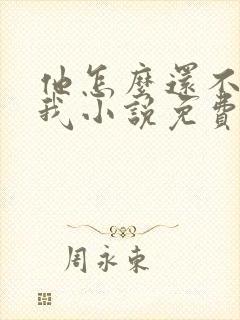 他怎麼還不
我小說免費
周永東